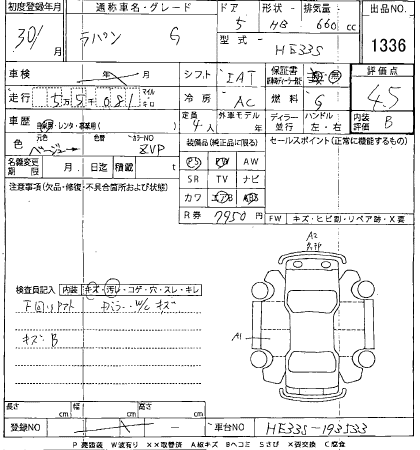 初度登録年月 通称車名・グレード ドア 形状 排気量 出品NO
30/1 ラパン G 5 HB 660 cc
型式 HE33S 1336
車検 年 月 シフト IAT 保証書 評価点
走行 5万5千081 マイル キロ 冷房 AC 燃料 G 4.5
車歴 自家用・レンタ・事業用( ) 定員 4人 外車モデル ディーラー 並行 ハンドル 左・右 内装評価 B
色 元色 ベージュ 色替 カラーNO ZVP 装備品(純正品に限る) セールスポイント(正常に機能するもの)
PS PW AW
名義変更期限 月 日迄 積載 SR TV ナビ
注意事項(欠品・修復・不具合箇所および状態) カワ エアB ABS
R券 7950円 FW キズ・ヒビ割・リペア跡・X要
A2
検査員記入 内装 キズ・汚レ・コゲ・穴・スレ・キレ
キズ・B A1
長さ cm 幅 cm 高さ cm
登録NO ー 車台NO HE33S-193533
P 要塗装 W波有り ××取替済 A線キズ Bヘコミ Sさび X要交換 C腐食